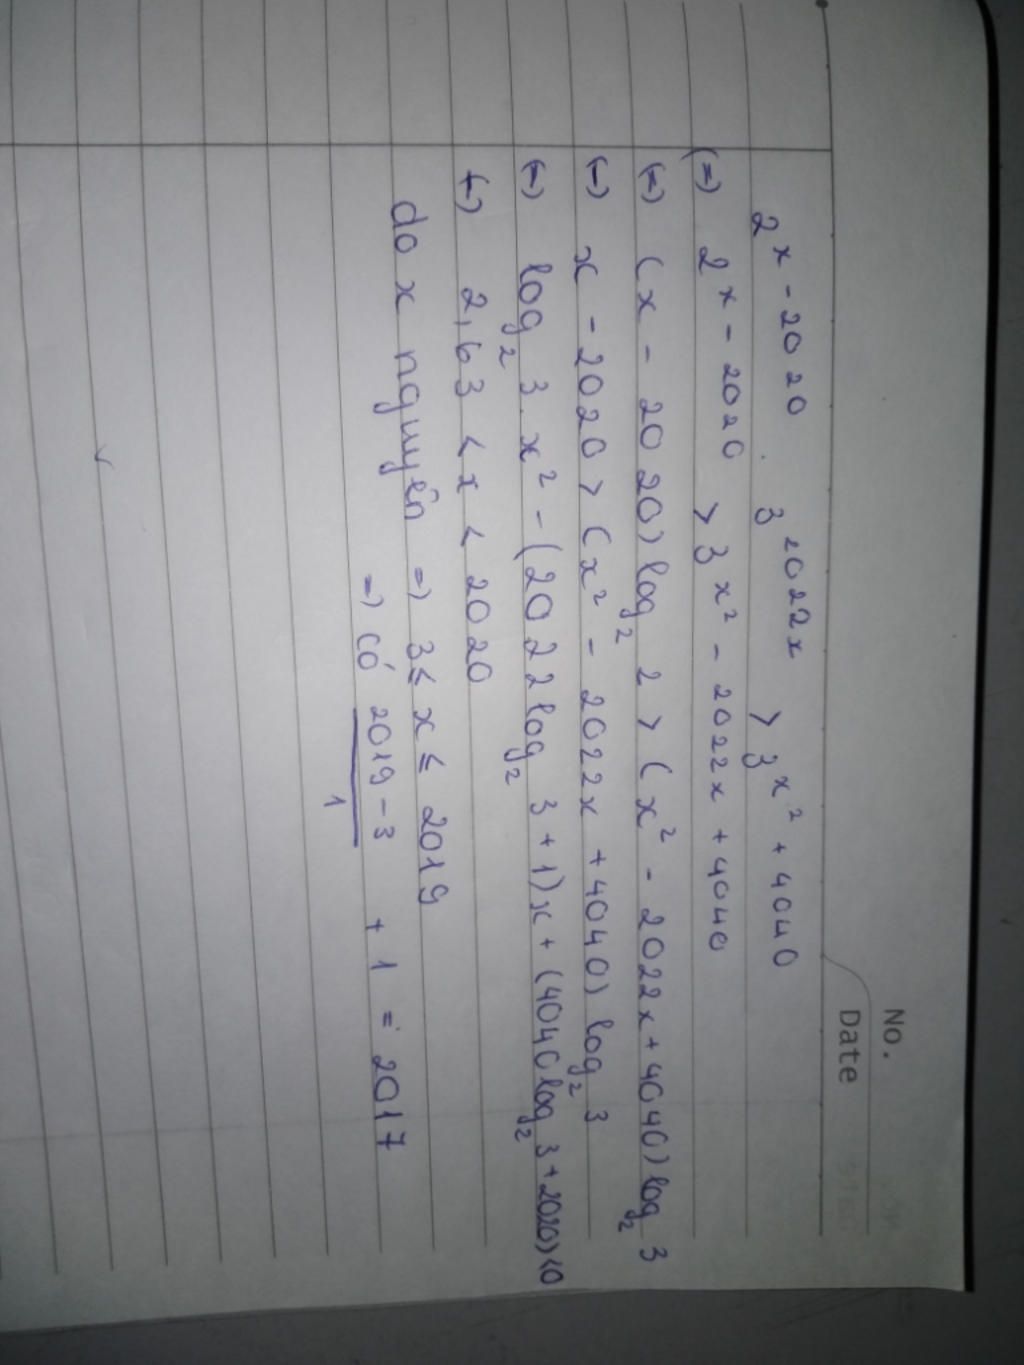 No.
Date
2^{x-2020} . 3^{2022x} > 3^{x²+4040}
(=) 2^{x-2020} > 3^{x²-2022x+4040}
(=) (x-2020) log₂ 2 > (x²-2022x+4040) log₂ 3
(=) x-2020 > (x²-2022x+4040) log₂ 3
(=) log₂ 3.x²-(2022 log₂ 3+1)x+(4040 log₂ 3+2020)<0
(=) 2,63 < x < 2020
do x nguyên =) 3 ≤ x ≤ 2019
=) có (2019-3)/1 + 1 = 2017